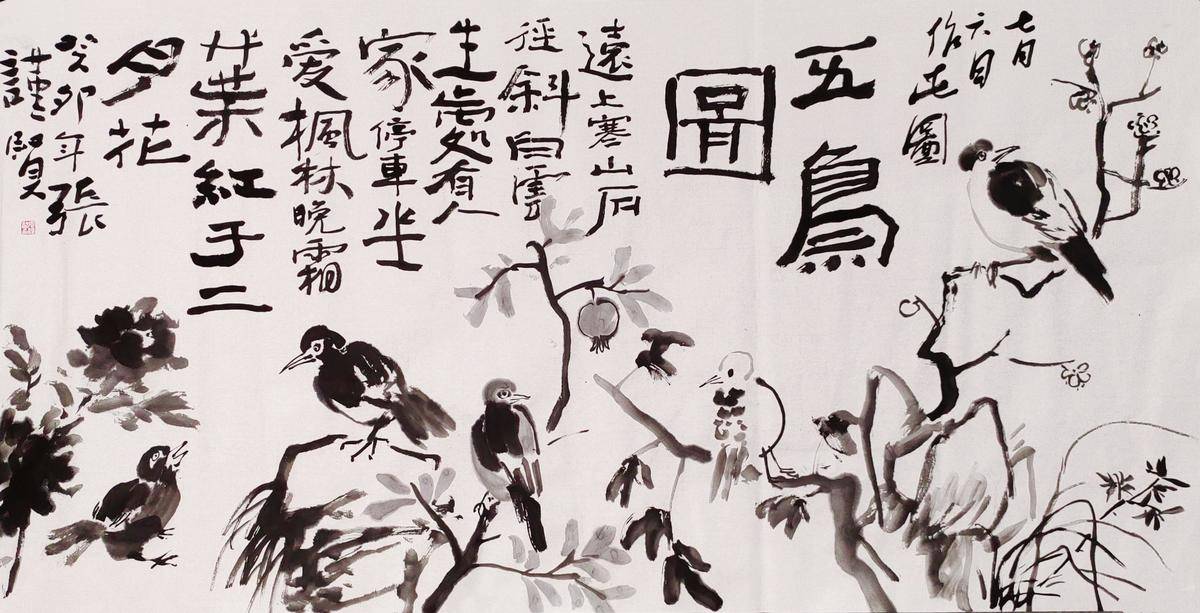 七月
六日
作此圖
五鳥
圖
遠上寒山石
徑斜白雲
生處有人
家停車坐
愛楓林晚霜
葉紅于二
月花
癸卯年張
謹賢